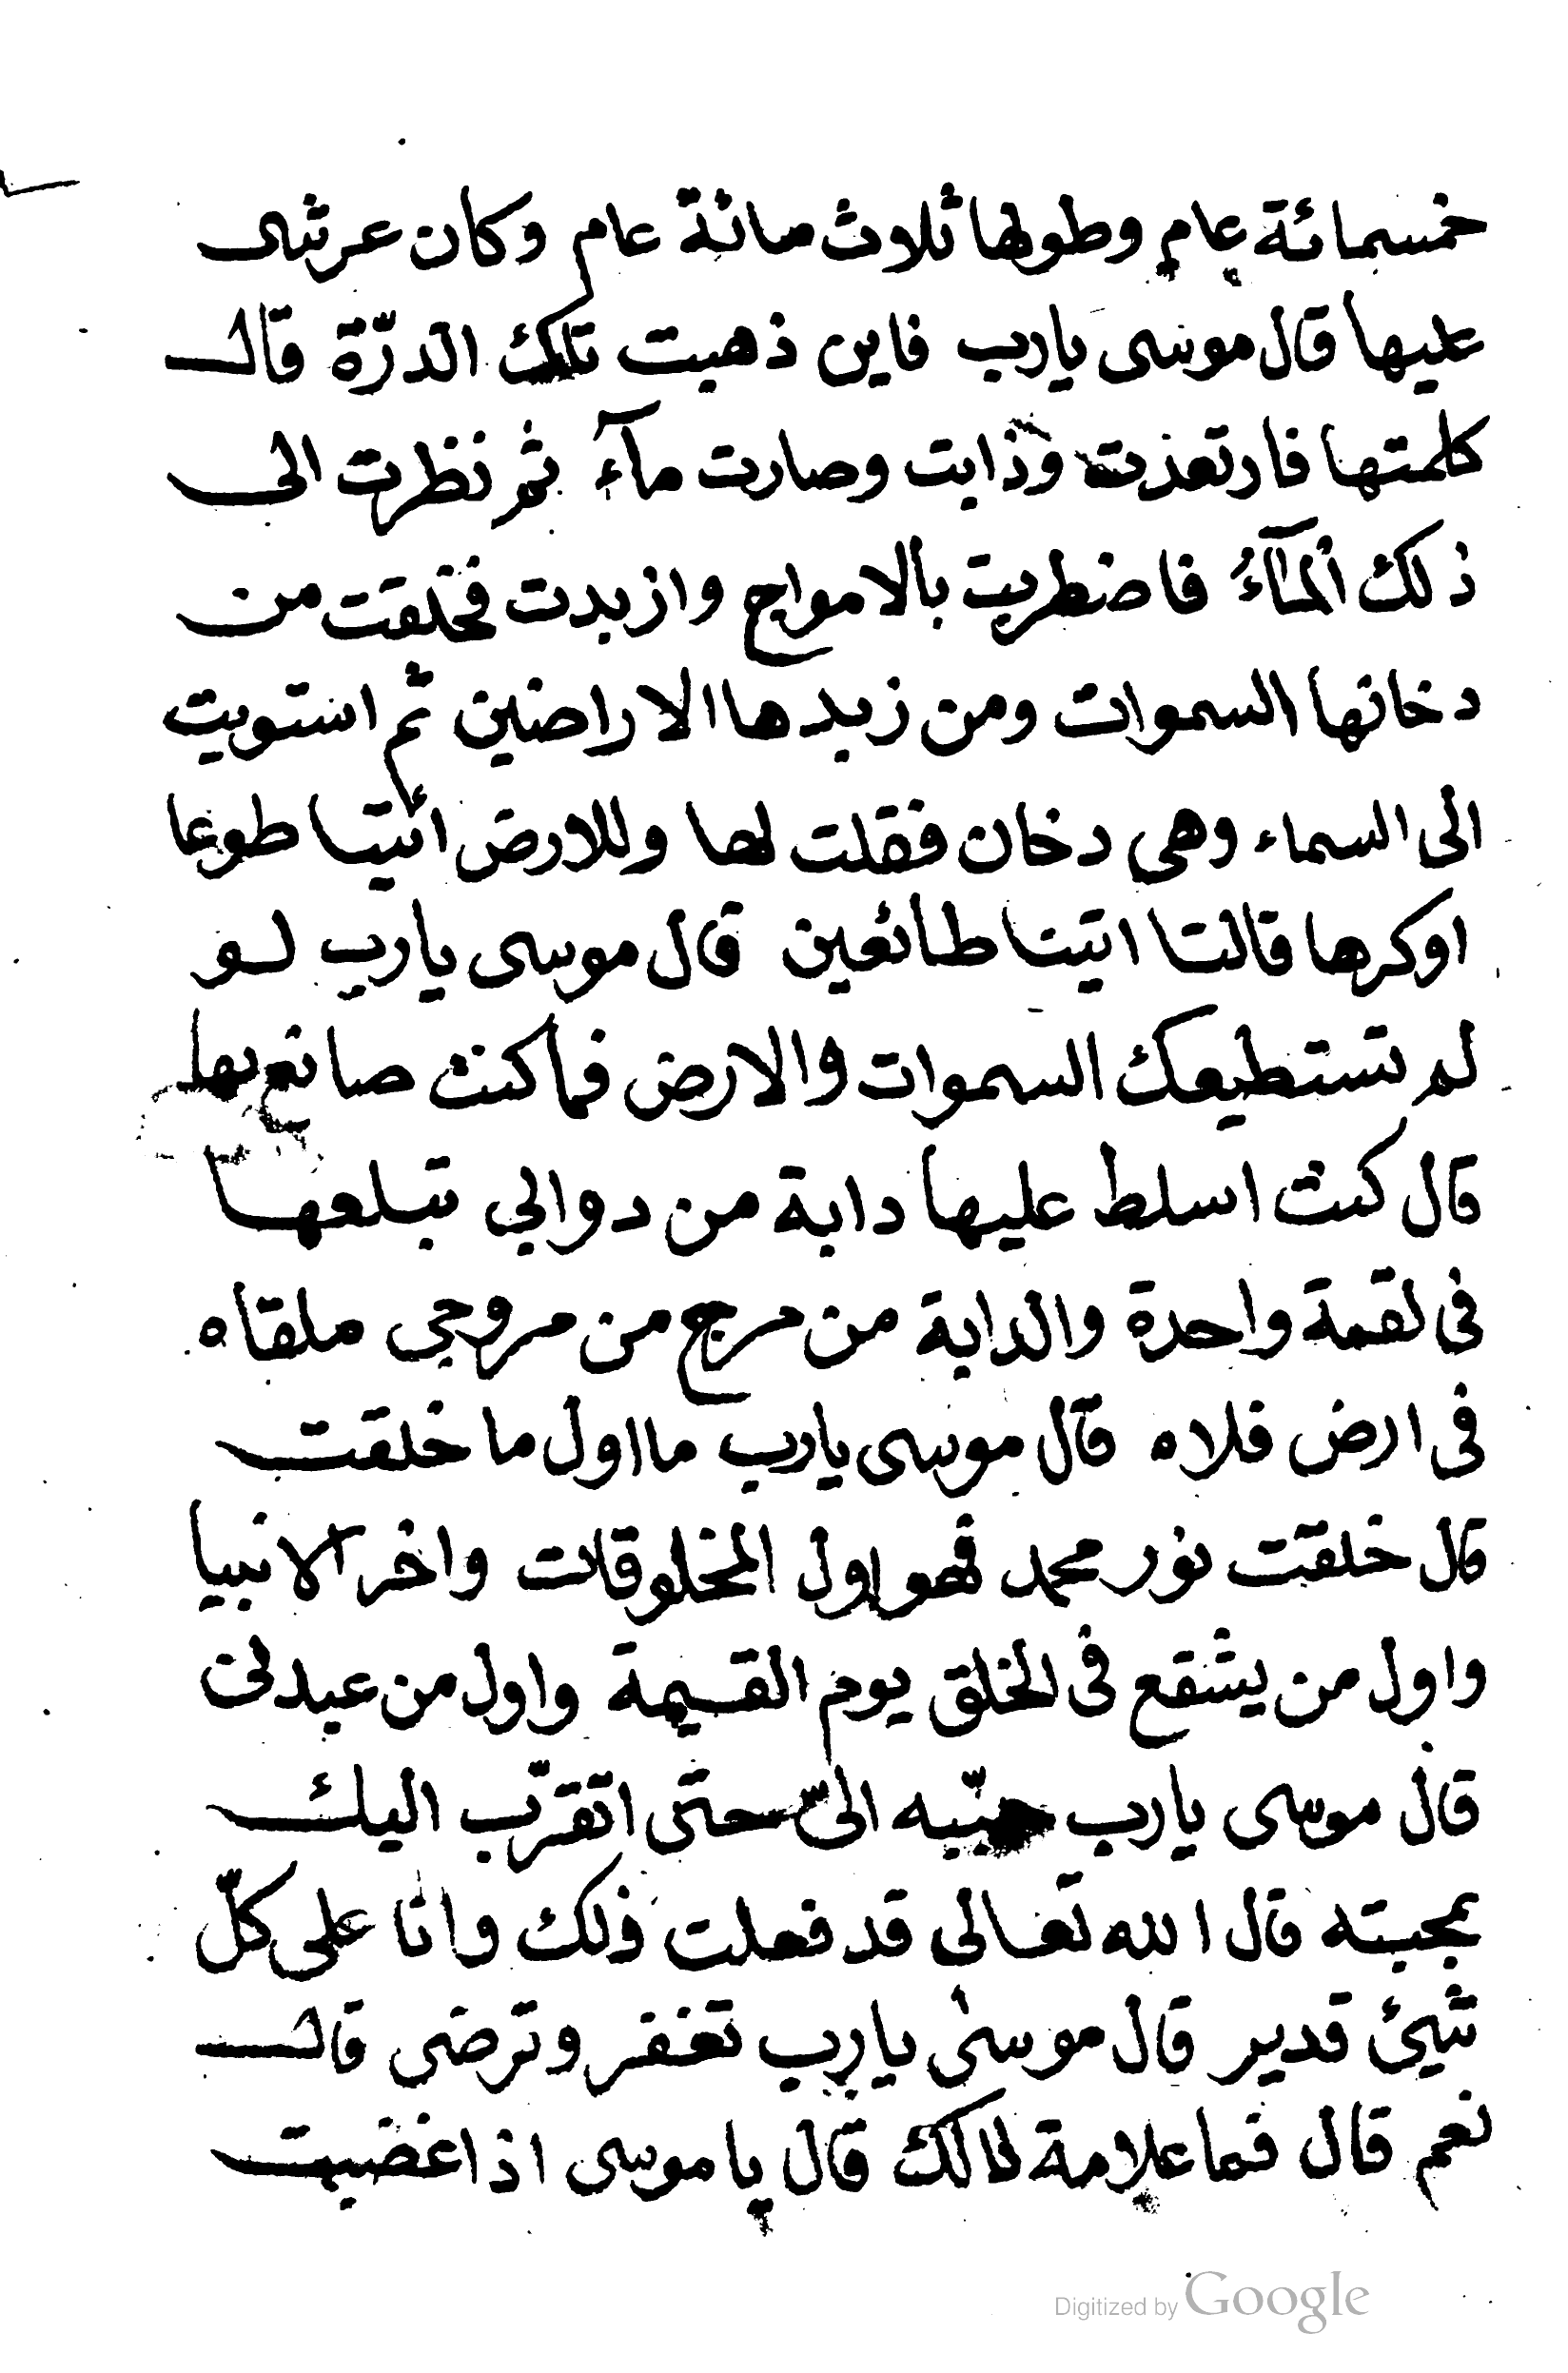 خمسمائة عام وطولها ثلاث مائة عام وكان عرشى
عليها قال موسى يارب فاين ذهبت تلك الدرّة قال
كلمتها فارتعدت وذابت وصارت مآء ثم نظرت الى
ذلك المآءُ فاضطربت بالامواج وازبدت فخلقت من
دخانها السموات ومن زبدها الاراضين ثم استويت
الى السماء وهى دخان فقلت لها وللارض ائتيا طوعا
اوكرها قالتا اتينا طائعين قال موسى يارب لو
لم تستطيعك السموات والارض فما كنت صانع بها
قال كنت اسلط عليها دابة من دوابي تبلعها
فى لقمة واحدة والدابة من مرج من مروجي ملقاه
فى ارض فلاه قال موسى يارب مااول ما خلقت
قال خلقت نور محمد فهو اول المخلوقات واخر الانبيا
واول من يشفع فى الخلق يوم القيمة واول من عبدنى
قال موسى يارب حبّبه الىّ حتى اتقرّب اليك
بمحبته قال الله تعالى قد فعلت ذلك وانا على كلّ
شيئ قدير قال موسى يارب تغفر وترضى قال
نعم قال فما علامة ذالك قال يا موسى اذا غضبت
Digitized by Google